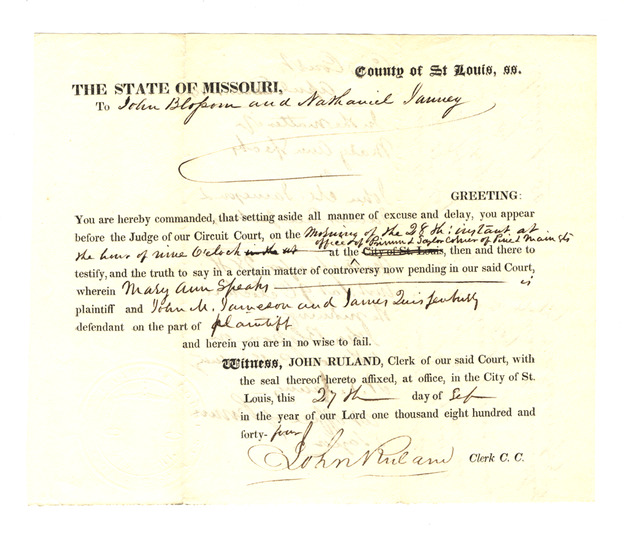 County of St Louis, ss.
THE STATE OF MISSOURI,
To John Blossom and Nathaniel Janney
GREETING:
You are hereby commanded, that setting aside all manner of excuse and delay, you appear
before the Judge of our Circuit Court, on the Morning of the 28th: instant at
the hour of nine O'clock in the at office of Primm & Taylor Corner of Pine & Main sts
at the City of St. Louis, then and there to
testify, and the truth to say in a certain matter of controversy now pending in our said Court,
wherein Mary Ann Speaks is
plaintiff and John M. Jameson and James
defendant on the part of plaintiff
and herein you are in no wise to fail.
Witness, JOHN RULAND, Clerk of our said Court, with
the seal thereof hereto affixed, at office, in the City of St.
Louis, this 27th day of Sep
in the year of our Lord one thousand eight hundred and
forty-four
John Ruland Clerk C. C.